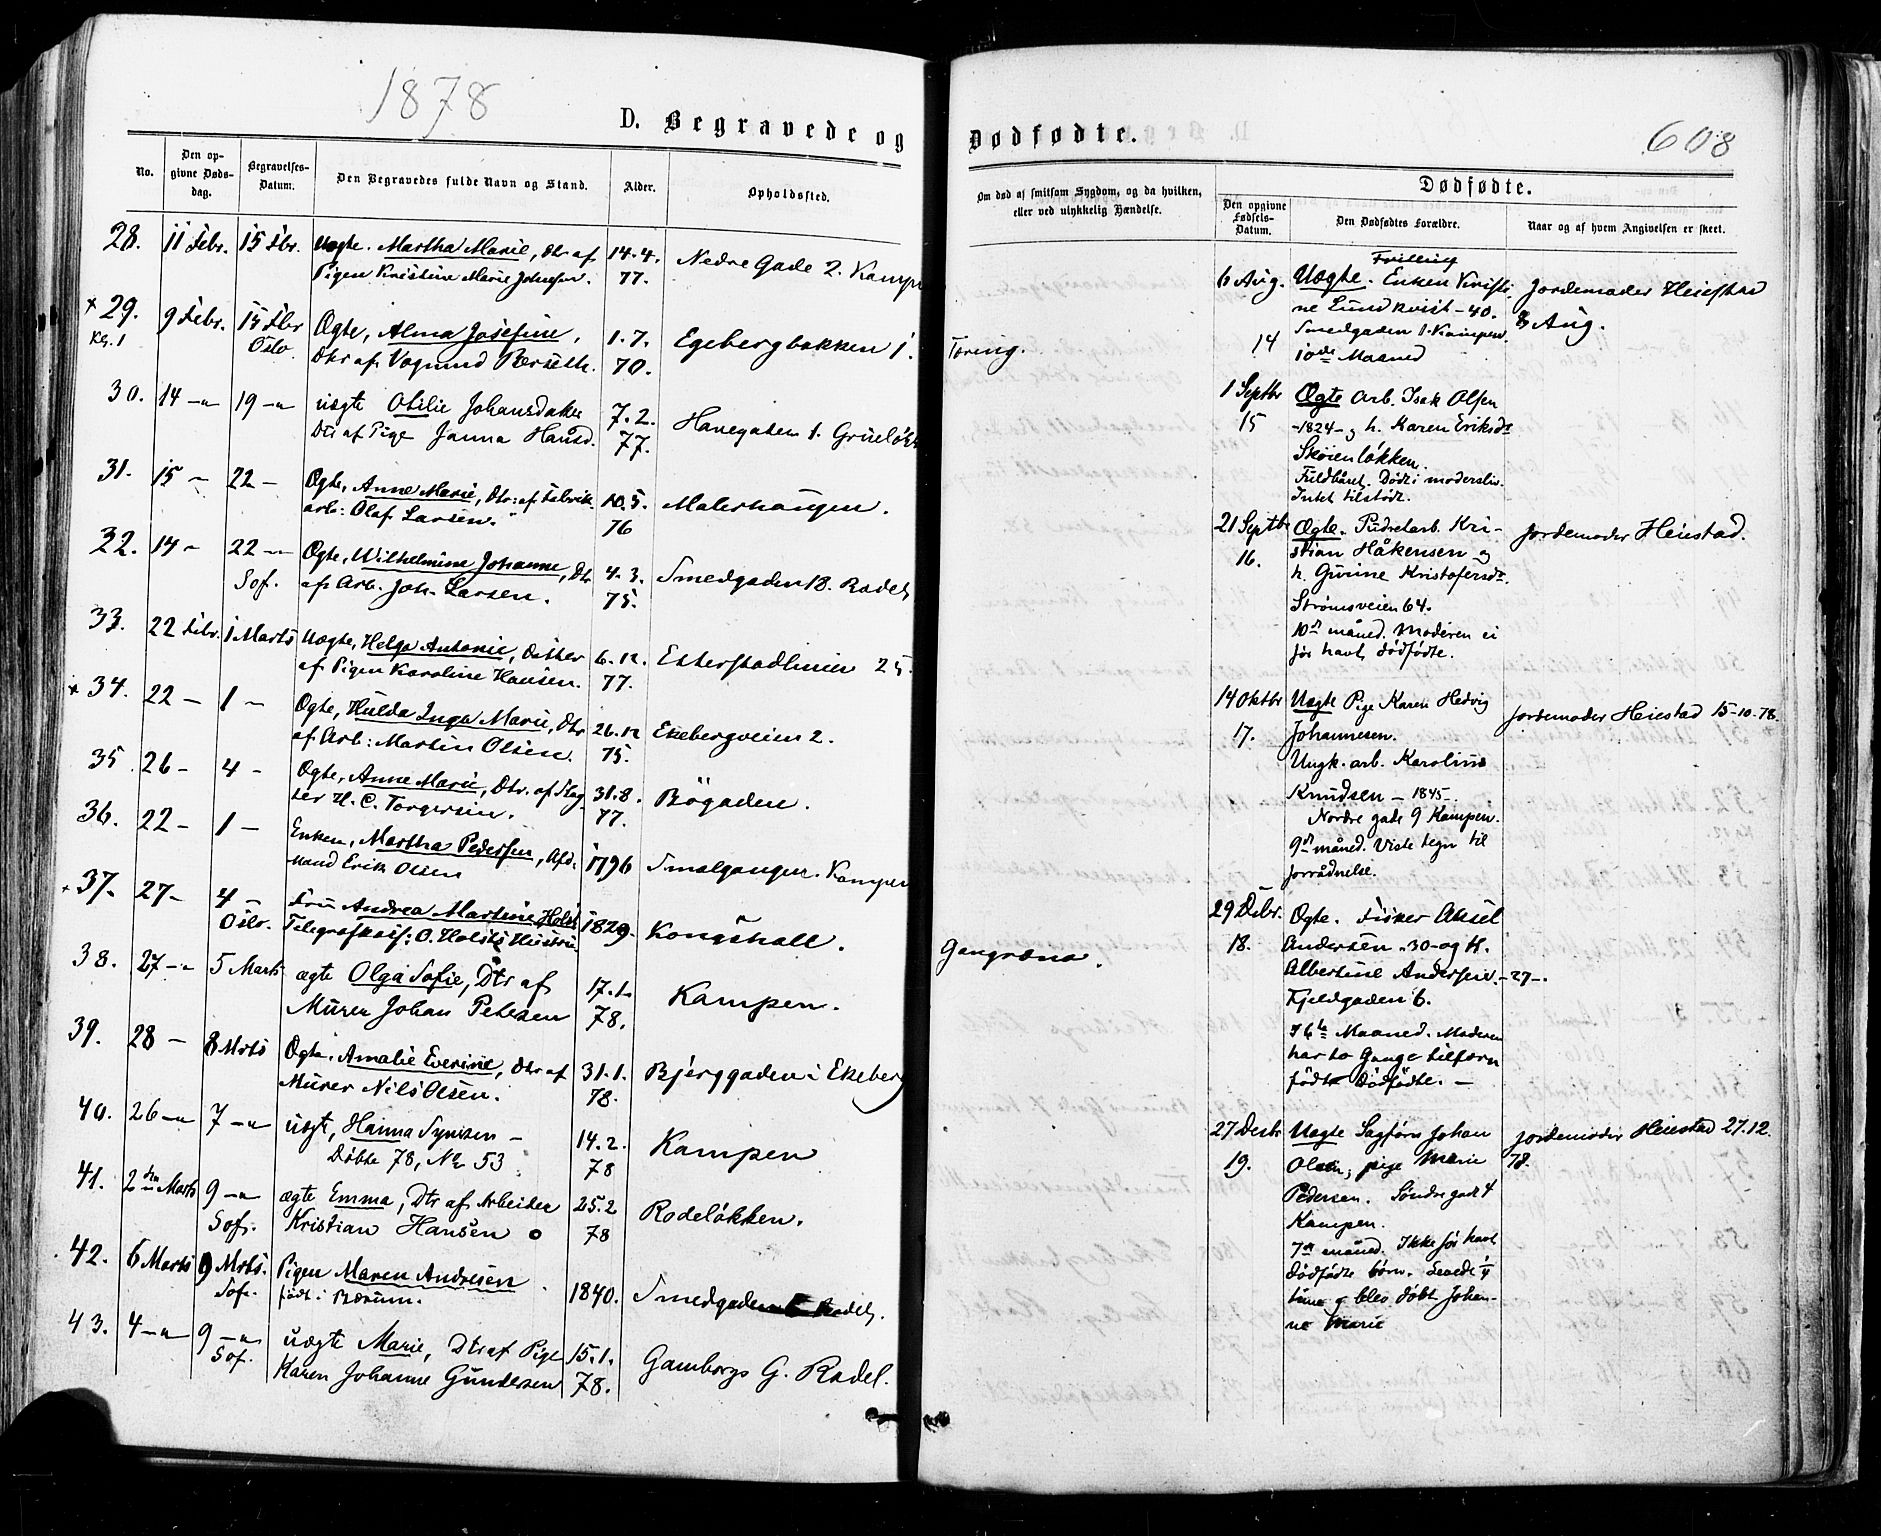 1878
D. Begravede og
No.
Den op-
givne Døds-
dag.
Begravelses-
Datum.
Den Begravedes fulde Navn og Stand.
Alder.
Opholdssted.
28. 11 Febr. 15 Fbr. Uægte. Martha Marie, Dtr af 14.4. Nedre Gade 2. Kampn
Pigen Kristine Marie Johnsen. 77.
x 29. 9 Febr. 15 Fbr Ægte, Alma Josefine, 1.7. Egebergbakken 1.
Kl. 1 Oslo Dtr af Vognmd Berseth. 70.
30. 14 – 19 – uægte Otilie Johansdatter 7.2. Havegaten 1. Grünerløk
Dtr af Pige Janna Hansd. 77.
31. 15 – 22 – Ægte, Anne Marie, Dtr: af Fabrik 10.5. Malerhaugen.
arb: Olaf Larsen. 76
32. 14 – 22 – Ægte, Wilhelmine Johanne, Dtr 4.3. Smedgaden 18. Rodel.
Sof. af Arb. Joh. Larsen. 75.
33. 22 Febr. 1 Marts Uægte, Helga Antonie, Datter 6.12. Etterstadlinien 25.
af Pigen Karoline Hansen. 77.
x 34. 22 – 1 – Ægte, Hulda Inga Marie, Dtr 26.12 Ekebergveien 2.
af Arb: Martin Olsen. 75.
35. 26 – 4 – Ægte, Anne Marie, Dtr. af Slag 31.8. Bøgaden.
ter H. C. Torgersen. 77.
36. 22 – 1 – Enken, Martha Pedersen, Afd: 1796 Smalgangen. Kampen
mand Erik Olsen
x 37. 27 – 4 – Fru Andrea Martine Holst 1829. Kongshall.
Oslo. Telegrafkass: O. Holsts Hustru
38. 27 – 5 Marts ægte Olga Sofie, Dtr af 17.1. Kampen.
Murer Johan Petersen 78.
39. 28 – 8 Mrts Ægte. Amalie Everine, Dtr af 31.1. Bjerggaden i Ekeberg
Murer Nils Olsen. 78.
40. 26 – 7 – uægt, Hanna 14.2. Kampen
Døbte 78, No 53 78
41. 2den Marts 9 – ægte Emma, Dtr af Arbeider 25.2 Rodeløkken.
Sof. Kristian Hansen 78
42. 6 Marts 9 Mrts. Pigen Maren Andresen 1840. Smedgaden Rodel.
Sof. født i Bærum.
43. 4 – 9 – uægte Marie, Dtr af Pige 15.1. Gamborgs G. Rodel.
Sof. Karen Johanne Gundersen 78.
Dødfødte.
608
Om død af smitsom Sygdom, og da hvilken,
eller ved ulykkelig Hændelse.
Dødfødte.
Den opgivne
Fødsels-
Datum.
Den Dødfødtes Forældre.
Naar og af hvem Angivelsen er skeet.
Tæring.
Gangræna.
Tvilling
6 Aug. Uægte. Enken Kristi Jordemoder Heiestad
ne Lundkvist – 40. 8 Aug.
Smedgaden 1. Kampen.
14 10de Maaned
1 Septbr Ægte Arb. Isak Olsen
15 –1824– og h. Karen Eriksdr
Skøienløkken.
Fuldbåret. Døde i modersliv.
Intet tilstødt.
21 Septbr Ægte. Pudretarb. Kri- Jordemoder Heiestad.
16. stian Håkensen og
h. Gurine Kristofersdr.
Strømsveien 64.
10n måned. Moderen ei
før havt dødfødte.
14 Oktbr Uægte Pige Karen Hedvig Jordemoder Heiestad 15-10-78.
17. Johannesen.
Ungk. arb. Karolius
Knudsen – 1845 –.
Nordre gade 9 Kampen.
9n måned. Viste tegn til
forrådnelse.
29 Debr. Ægte. Fisker Aksel
18. Andersen –30– og H.
Albertine Andersen –27–.
Fjeldgaden 6.
Maaned. Moderen
har to Gange tilforn
født Dødfødte. –
27 Desbr Uægte Sagførr Johan Jordemoder Heiestad 27.12.
19. Olsen, pige Marie 78.
Pedersen. Søndre gade 4
Kampen.
7de måned. Ikke før havt
dødfødte børn. Levede 1/4
time og blev døbt Johan-
ne Marie